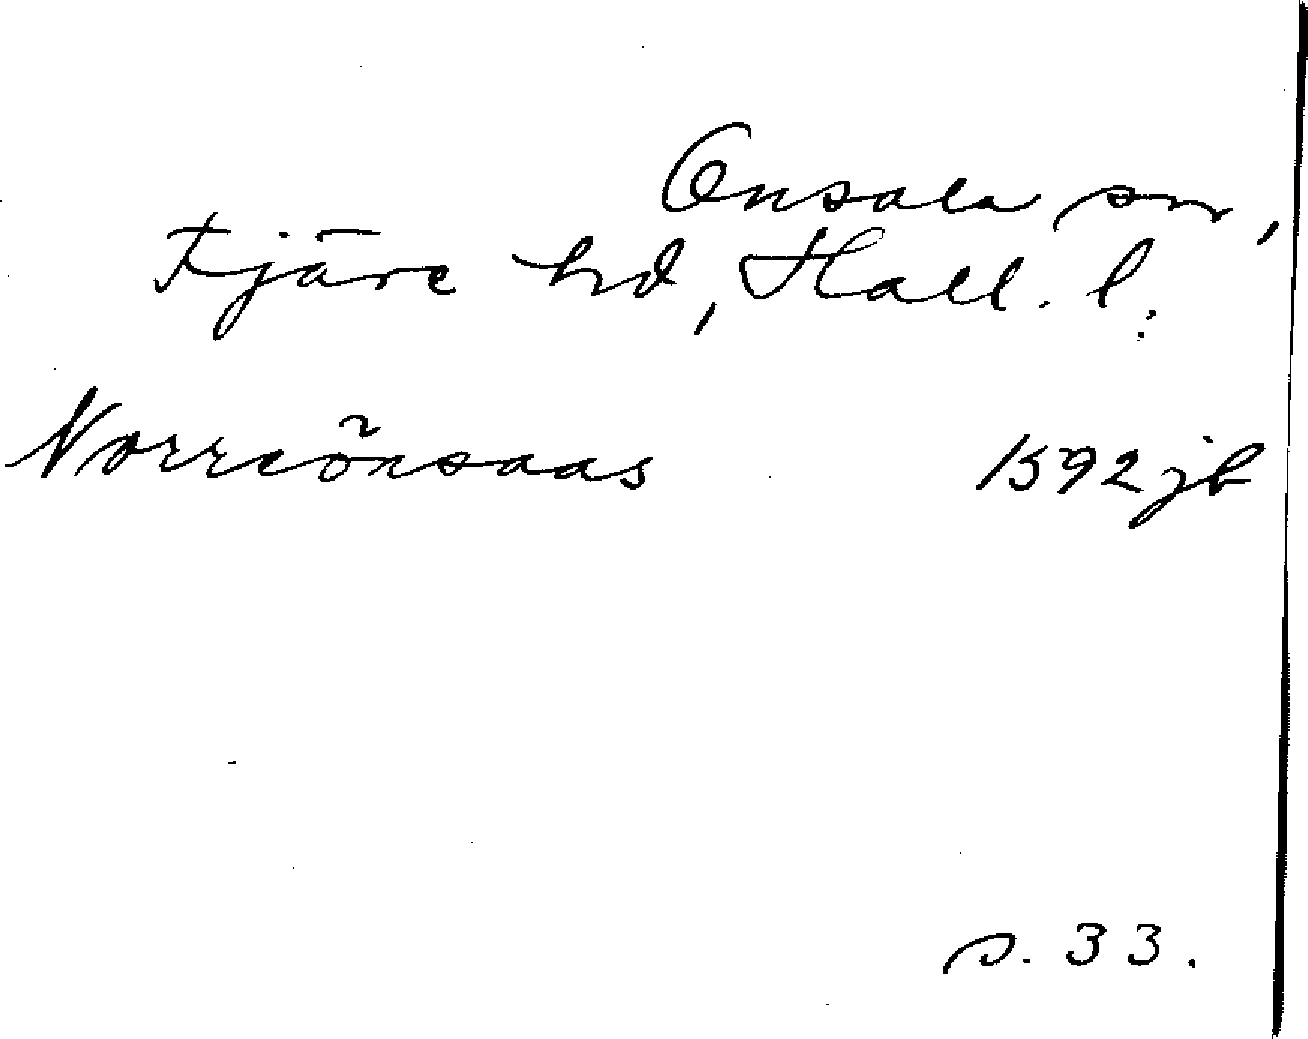 Onsala sn,
Fjäre hd, Hall. l.
Norreõnsaas 1592 jb
s. 33.